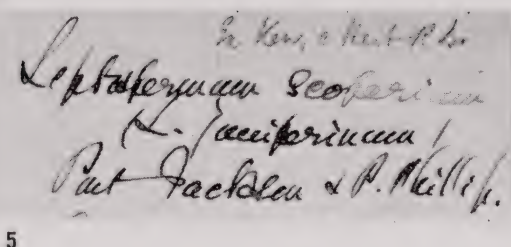 Leptospermum scoparium
(L. juniperinum)
Port Jackson & P. Phillip.
5